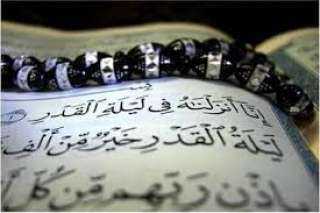 إِنَّا أَنزَلْنَٰهُ فِي لَيْلَةِ ٱلْقَدْرِ ١
لَيْلَةُ ٱلْقَدْرِ خَيْرٌ مِّنْ أَلْفِ
بِإِذْنِ رَبِّهِم مِّن كُلِّ